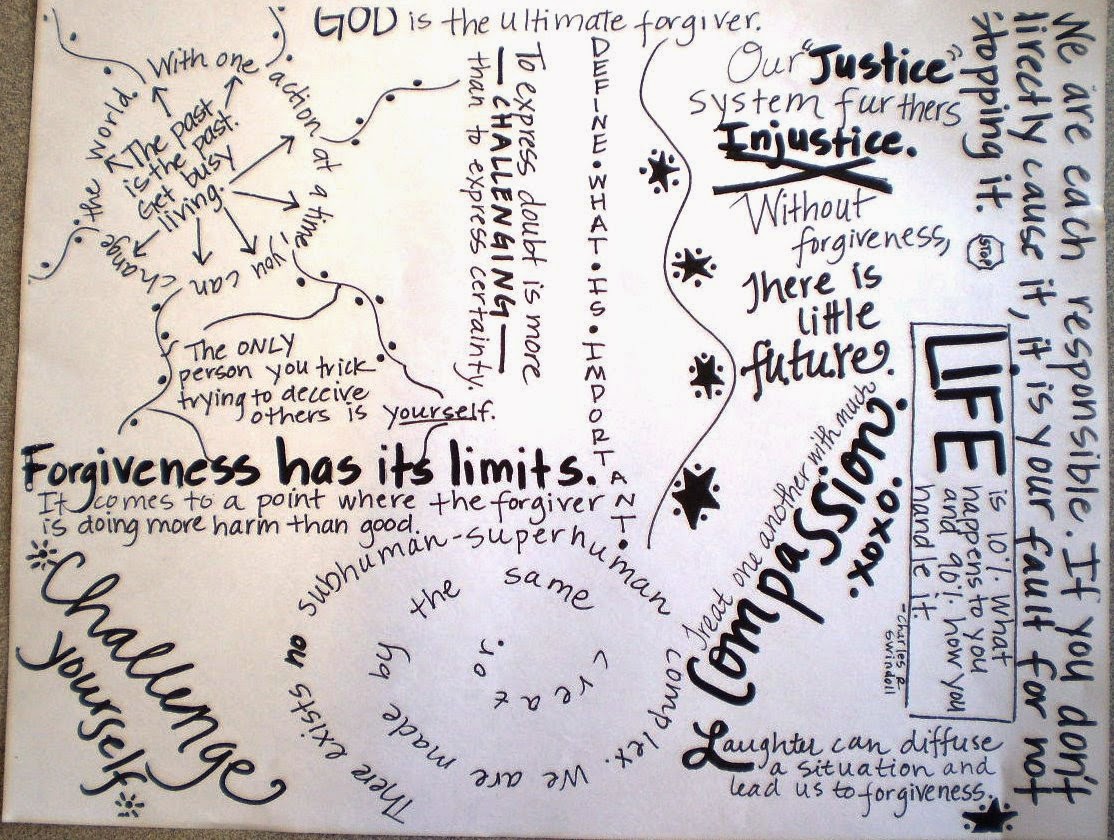 GOD is the ultimate forgiver.
With one action at a time, you can change the world.
The past
is the past.
Get busy
living.
To express doubt is more
— CHALLENGING —
than to express certainty.
DEFINE·WHAT·IS·IMPORTANT·
Our "Justice"
system furthers
Injustice.
Without
forgiveness,
There is
little
future.
We are each responsible. If you don't
directly cause it, it is your fault for not
stopping it.
STOP
LIFE
is 10%. What
happens to you
and 90%. how you
handle it.
-Charles R.
Swindoll
The ONLY
person you trick
trying to deceive
others is yourself.
Forgiveness has its limits.
It comes to a point where the forgiver
is doing more harm than good.
Challenge
yourself
There exists no subhuman-superhuman complex. We are made by the same creator.
Treat one another with much
Compassion.
xoxo.
Laughter can diffuse
a situation and
lead us to forgiveness.